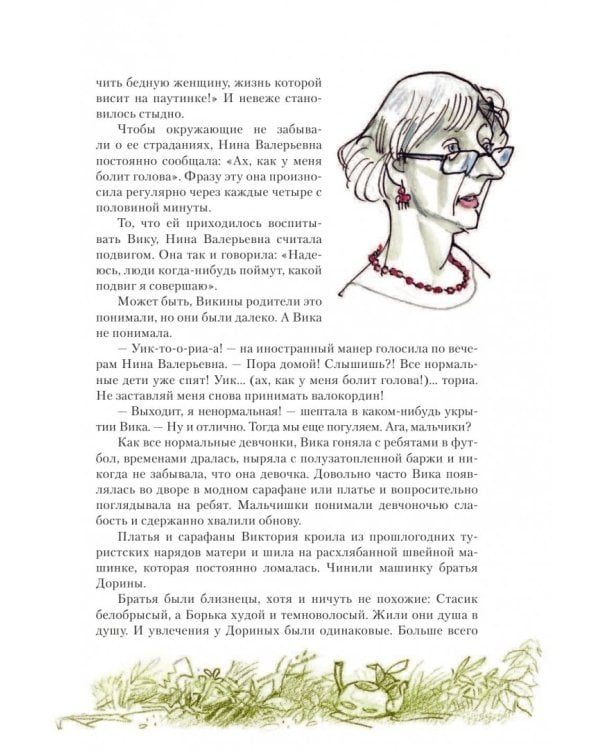 чить бедную женщину, жизнь которой
висит на паутинке!» И невеже стано-
вилось стыдно.
Чтобы окружающие не забыва-
ли о ее страданиях, Нина Валерьевна
постоянно сообщала: «Ах, как у меня
болит голова». Фразу эту она произно-
сила регулярно через каждые четыре с
половиной минуты.
То, что ей приходилось воспиты-
вать Вику, Нина Валерьевна считала
подвигом. Она так и говорила: «Наде-
юсь, люди когда-нибудь поймут, какой
подвиг я совершаю».
Может быть, Викины родители это
понимали, но они были далеко. А Вика
не понимала.
— Уик-то-о-риа-а! — на иностранный манер голосила по вече-
рам Нина Валерьевна. — Пора домой! Слышишь?! Все нормаль-
ные дети уже спят! Уик... (ах, как у меня болит голова!)... ториа.
Не заставляй меня снова принимать валокордин!
— Выходит, я ненормальная! — шептала в каком-нибудь укры-
тии Вика. — Ну и отлично. Тогда мы еще погуляем. Ага, мальчики?
Как все нормальные девчонки, Вика гоняла с ребятами в фут-
бол, временами дралась, ныряла с полузатопленной баржи и ни-
когда не забывала, что она девочка. Довольно часто Вика появ-
лялась во дворе в модном сарафане или платье и вопросительно
поглядывала на ребят. Мальчишки понимали девчоночью сла-
бость и сдержанно хвалили обнову.
Платья и сарафаны Виктория кроила из прошлогодних ту-
ристских нарядов матери и шила на расхлябанной швейной ма-
шинке, которая постоянно ломалась. Чинили машинку братья
Дорины.
Братья были близнецы, хотя и ничуть не похожие: Стасик
белобрысый, а Борька худой и темноволосый. Жили они душа в
душу. И увлечения у Дориных были одинаковые. Больше всего